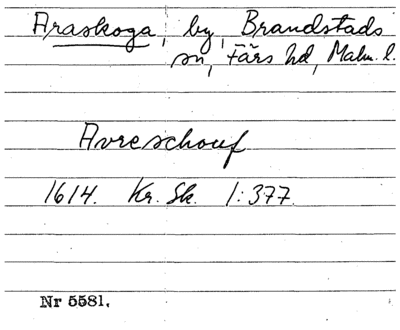 Araskoga, by, Brandstads
sn, Färs hd, Malm. l.
Avreschouf
1614. Kr. Sk. 1:377.
Nr 5581.